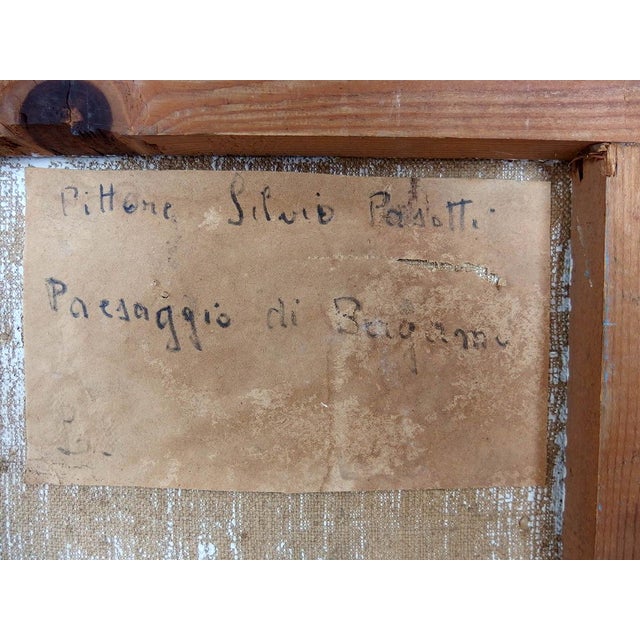 Pittore Silvio Pasotti
Paesaggio di Bergamo
L.